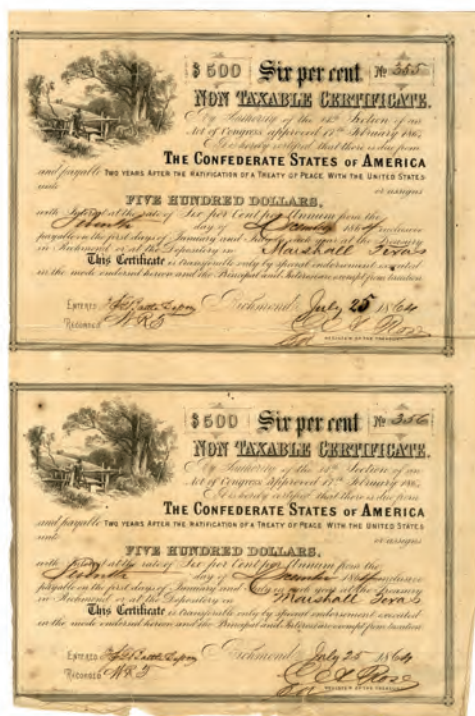 $500 Six per cent No 355
NON TAXABLE CERTIFICATE.
By Authority of the 14th Section of an
Act of Congress approved 17th February 1864
It is hereby certified that there is due from
THE CONFEDERATE STATES OF AMERICA
and payable TWO YEARS AFTER THE RATIFICATION OF A TREATY OF PEACE WITH THE UNITED STATES
unto or assigns
FIVE HUNDRED DOLLARS,
with Interest at the rate of Six per Cent per Annum from the
day of December 1864 inclusive
payable on the first days of January and July in each year at the Treasury
in Richmond or at the Depository in Marshall Texas
This Certificate is transferable only by special endorsement executed
in the mode endorsed hereon and the Principal and Interest are exempt from taxation
ENTERED Richmond July 25 1864
RECORDED WRS Rose
for REGISTER OF THE TREASURY
$500 Six per cent No 356
NON TAXABLE CERTIFICATE.
By Authority of the 14th Section of an
Act of Congress approved 17th February 1864
It is hereby certified that there is due from
THE CONFEDERATE STATES OF AMERICA
and payable TWO YEARS AFTER THE RATIFICATION OF A TREATY OF PEACE WITH THE UNITED STATES
unto or assigns
FIVE HUNDRED DOLLARS,
with Interest at the rate of Six per Cent per Annum from the
day of December 1864 inclusive
payable on the first days of January and July in each year at the Treasury
in Richmond or at the Depository in Marshall Texas
This Certificate is transferable only by special endorsement executed
in the mode endorsed hereon and the Principal and Interest are exempt from taxation
ENTERED Richmond July 25 1864
RECORDED WRS Rose
for REGISTER OF THE TREASURY